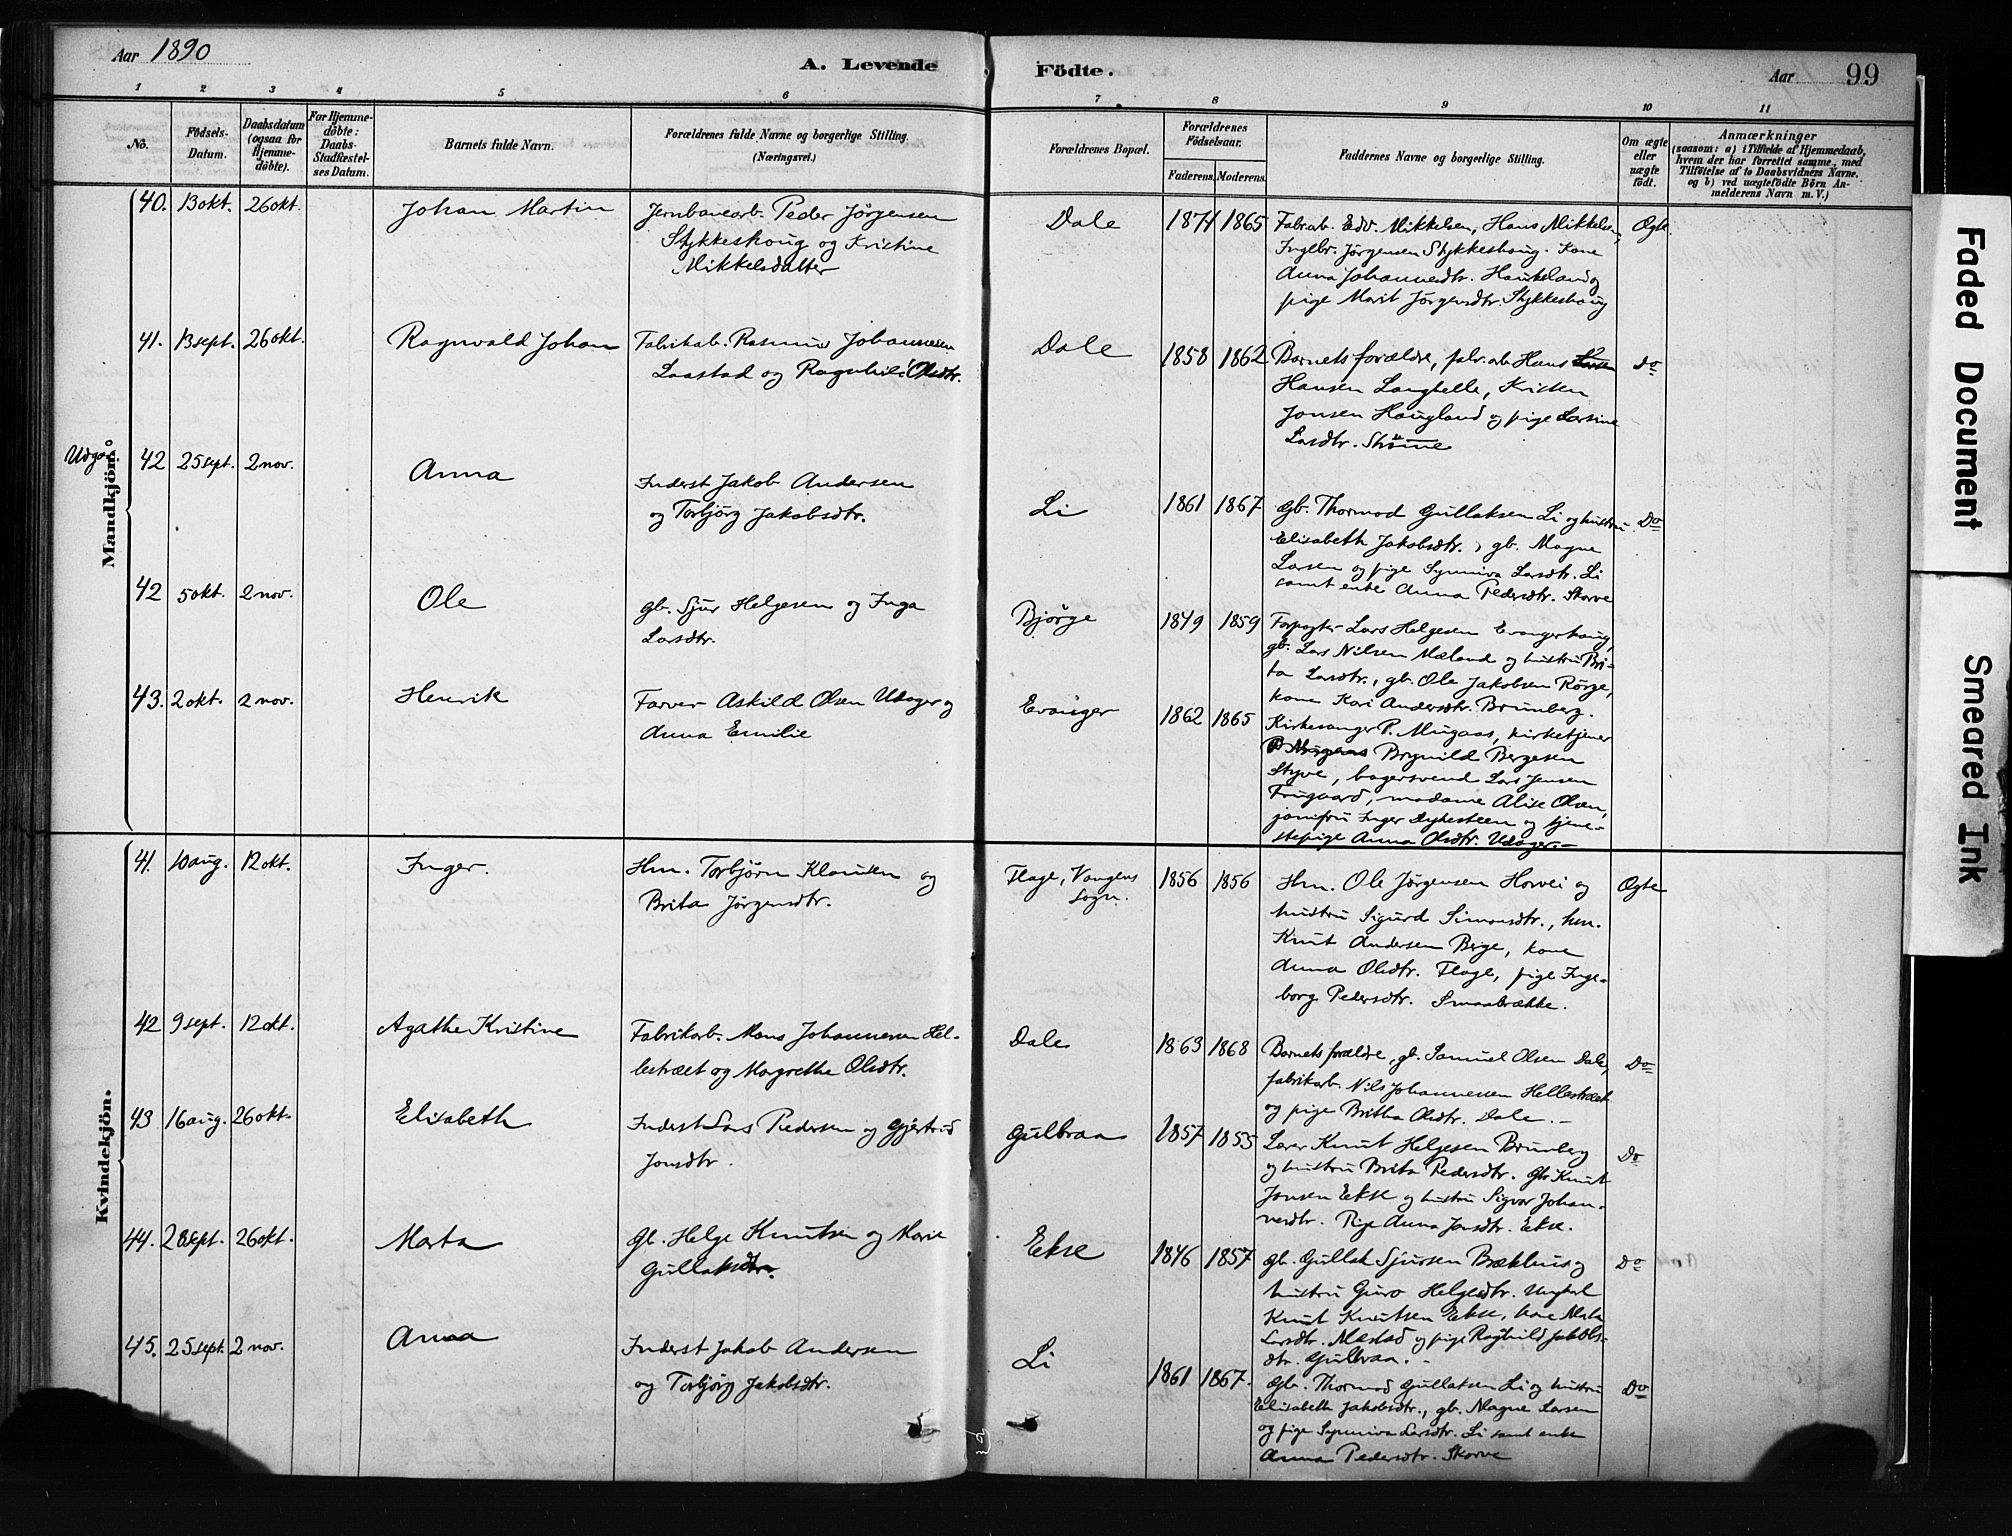 Aar 1890
A. Levende Födte.
Aar 99
1 2 3 4 5 6 7 8 9 10 11
No.
Födsels-Datum.
Daabsdatum (ogsaa for Hjemme-döbte).
For Hjemme-döbte: Daabs-Stadfæstel-ses Datum.
Barnets fulde Navn.
Forældrenes fulde Navne og borgerlige Stilling. (Næringsvei.)
Forældrenes Bopæl.
Forældrenes Födselsaar.
Faderens. Moderens.
Faddernes Navne og borgerlige Stilling.
Om ægte eller uægte födt.
Anmærkninger
(saasom: a) i Tilfælde af Hjemmedaab, hvem der har forrettet samme, med Tilföielse af to Daabsvidners Navne. og b) ved uægtefödte Börn An-melderens Navn m. V.)
Mandkjön.
40. 13 okt. 26 okt. Johan Martin
Jernbanearb. Peder Jørgensen
Stykkeshoug og Kristine
Mikkelsdatter
Dale 1874 1865
Fabrab. Edv. Mikkelsen, Hans Mikkelsen,
Ingebr. Jørgensen Stykkeshoug. Kone
Anna Johannesdtr. Haukeland og
pige Marit Jørgensdtr. Stykkeshoug
Ægte.
41. 13 sept. 26 okt. Ragnvald Johan
Fabrikab. Rasmus Johannesen
Laastad og Ragnhild Olsdtr.
Dale 1858 1862
Barnets forældre, fabr. arb Hans
Hansen Langhelle, Kristen
Jonsen Haugland og pige Larsine
Larsdtr. Strømme
Do
Udgår 42 25 sept. 2 nov. Anna
Inderst Jakob Andersen
og Torbjørg Jakobsdtr.
Li 1861 1867
gb. Thormod Gullaksen Li og hustru
Elisabeth Jakobsdtr., gb. Magne
Larsen og pige Synniva Larsdtr. Li
samt enke Anna Pedersdtr. Skorve
Do
42 5 okt. 2 nov. Ole
gb. Sjur Helgesen og Inga
Larsdtr.
Bjørge 1849 1859
Forpagter Lars Helgesen Evangerhoug,
gb. Lars Nilsen Mæland og hustru Bri-
ta Larsdtr., gb. Ole Jakobsen Rørge,
kone Kari Andersdtr. Brunberg.
43. 2 okt. 2 nov. Henrik
Farver Askild Olsen Udager og
Anna Emilie
Evanger 1862 1865
Kirkesanger P. Mugaas, kirketjener
P. Mugaas Brynild Bergesen
Styve, bagersvend Lars Jensen
Frugaard, madame Alise Olsen,
jomfru Inger Dykesteen og tjene-
stepige Anna Olsdtr. Udager.—
Kvindekjön.
41. 10 aug. 12 okt. Inger.
Hm. Torbjørn Klausen og
Brita Jørgensdtr.
Flage, Vangens
Sogn.
1856 1856
Hm. Ole Jørgensen Horvei og
hustru Sigurd Simonsdtr., hm.
Knut Andersen Berge, kone
Anna Olsdtr. Flage, pige Inge-
borg Pedersdtr. Smaabrække.
Ægte
42 9 sept. 12 okt. Agathe Kristine
Fabrikarb. Mons Johannesen Hel-
lestræet og Margrethe Olsdtr.
Dale 1863 1868
Barnets forældre, gb. Samuel Olsen Dale,
fabrikarb. Nils Johannessen Hellestræet
og pige Britha Olsdtr. Dale.—
Do
43 16 aug. 26 okt. Elisabeth
Inderst Lars Pedersen og Gjertrud
Jonsdtr.
Gulbraa 1857 1855
Lærer Knut Helgesen Brunberg
og hustru Brita Pedersdtr. Gb. Knut
Jonsen Ekse og hustru Sigvor Johan-
nesdtr. Pige Anna Jonsdtr. Ekse.
Do
44. 28 sept. 26 okt. Marta
Gb. Helge Knutsen og Mari
Gullaksdtr.
Ekse 1846 1857
gb. Gullak Sjursen Brækhus og
hustru Guro Helgesdtr. Ungkarl
Knut Knutsen Ekse, kone Marta
Larsdtr. Mæstad og pige Ragnhild Jakobs-
dtr. Gulbraa.—
Do
45. 25 sept. 2 nov. Anna
Inderst Jakob Andersen
og Torbjørg Jakobsdtr.
Li 1861 1867.
Gb. Thormod Gullaksen Li og hustru
Elisabeth Jakobsdtr., gb. Magne Larsen
og pige Synniva Larsdtr. Li samt enke
Anna Pedersdtr. Skorve
Do
Faded Document
Smeared Ink